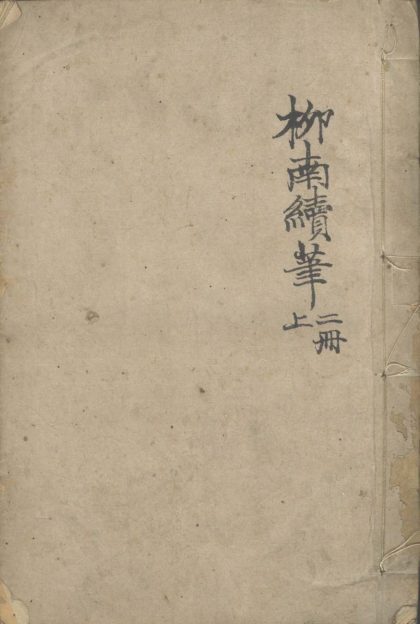 柳南續筆
二冊
上